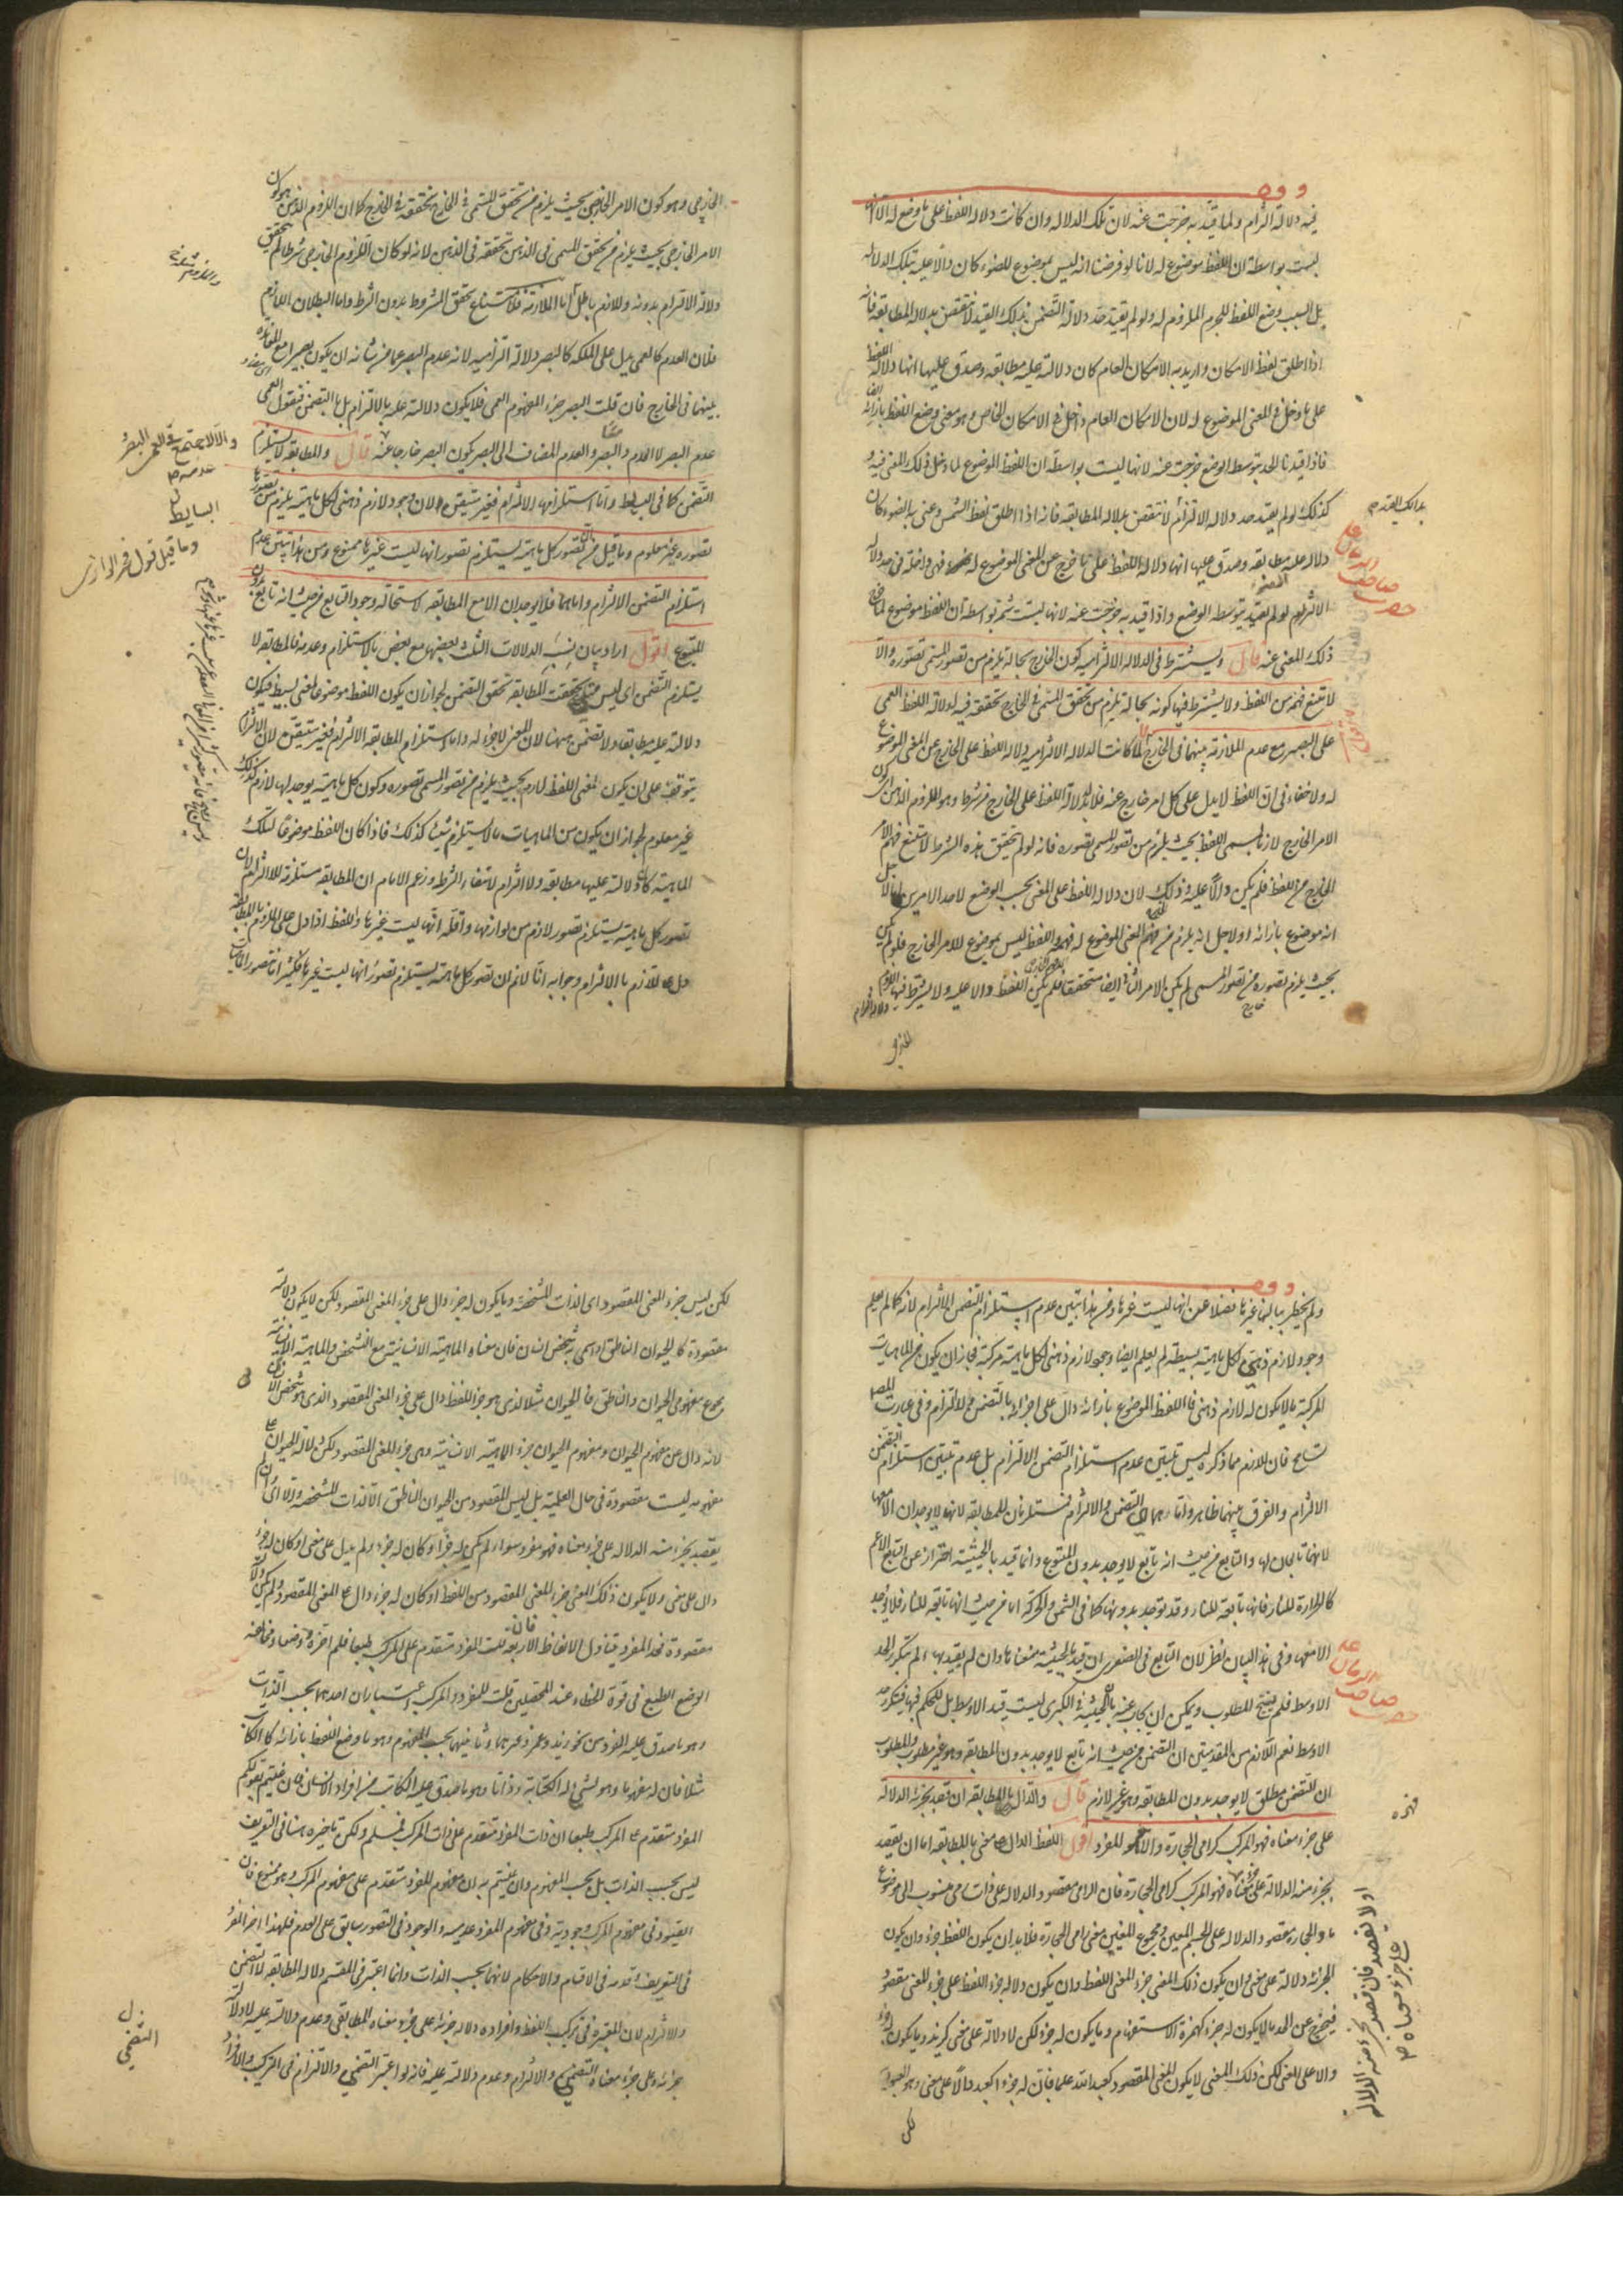 فيه دلالة التزام ولما قيد به خرجت عنه لان تلك الدلالة وان كانت دلالة اللفظ على ما وضع له الا انها
ليست بواسطة ان اللفظ موضوع له لانا لو فرضنا انه ليس بموضوع للضوء كان دالا عليه بتلك الدلالة
بل بسبب وضع اللفظ للجرم الملزوم له ولو لم يقيد حد دلالة التضمن بذلك القيد لانتقض بدلالة المطابقة فانه
اذا اطلق لفظ الامكان واريد به الامكان العام كان دلالته عليه مطابقة وصدق عليها انها دلالة اللفظ
على ما دخل في المعنى الموضوع له لان الامكان العام داخل في الامكان الخاص وهو معنى وضع اللفظ بازائه
فاذا قيدنا الحد بتوسط الوضع خرجت عنه لانها ليست بواسطة ان اللفظ الموضوع لما دخل ذلك المعنى فيه و
كذلك لو لم يقيد حد دلالة الالتزام لانتقض بدلالة المطابقة فانه اذا اطلق لفظ الشمس وعنى به الضوء كان
دلالته عليه مطابقة وصدق عليها انها دلالة اللفظ على ما خرج عن المعنى الموضوع له فهي داخلة في حد دلالة
الالتزام لو لم يقيد بتوسط الوضع واذا قيد به خرجت عنه لانها ليست ثمة بواسطة ان اللفظ موضوع لما خرج
ذلك المعنى عنه قال ويشترط في الدلالة الالتزامية كون الخارج بحالة يلزم من تصور المسمى تصوره والا
لامتنع فهمه من اللفظ ولا يشترط فيها كونه بحالة يلزم من تحقق المسمى في الخارج تحققه فيه لدلالة اللفظ العمى
على البصر مع عدم الملازمة بينهما في الخارج لما كانت الدلالة الالتزامية دلالة اللفظ على الخارج عن المعنى الموضوع
له ولا خفاء في ان اللفظ لا يدل على كل امر خارج عنه فلا بد لدلالة اللفظ على الخارج من شرط وهو اللزوم الذهني اي كون
الامر الخارج لازما لمسمى اللفظ بحيث يلزم من تصور المسمى تصوره فانه لو لم يتحقق هذه الشرط لامتنع فهم الامر
الخارج من اللفظ فلم يكن دالا عليه وذلك لان دلالة اللفظ على المعنى بحسب الوضع لاحد الامرين اما لاجل
انه موضوع بازائه او لاجل انه يلزم من فهم المعنى الموضوع له فهمه واللفظ ليس بموضوع للامر الخارج فلو لم يكن
بحيث يلزم تصوره من تصور المسمى لم يكن الامر الثاني ايضا متحققا فلم يكن اللفظ دالا عليه ولا يشترط فيها اللزوم
الخارجي وهو كون الامر الخارجي بحيث يلزم من تحقق المسمى في الخارج تحققه في الخارج كما ان اللزوم الذهني هو كون
الامر الخارجي بحيث يلزم من تحقق المسمى في الذهن تحققه في الذهن لانه لو كان اللزوم الخارجي شرطا لم يتحقق
دلالة الالتزام بدونه واللازم باطل اما الملازمة فلامتناع تحقق المشروط بدون الشرط واما بطلان اللازم
فلان العدم كالعمى يدل على الملكة كالبصر دلالة التزامية لانه عدم البصر عما من شانه ان يكون بصيرا مع المعاندة
بينهما في الخارج فان قلت البصر جزء المفهوم العمى فلا يكون دلالته عليه بالالتزام بل بالتضمن فنقول العمى
عدم البصر لا العدم والبصر والعدم المضاف الى البصر يكون البصر خارجا عنه قال والمطابقة لا يستلزم
التضمن كما في البسايط واما استلزامها الالتزام فغير متيقن لان وجود لازم ذهني لكل ماهية يلزم من تصورها
تصوره غير معلوم وما قيل من ان تصور كل ماهية يستلزم تصور انها ليست غيرها ممنوع ومن هذا تبين عدم
استلزام التضمن الالتزام واما هما فلا يوجدان الا مع المطابقة لاستحالة وجود التابع من حيث انه تابع بدون
المتبوع اقول اراد بيان نسبة الدلالات الثلث بعضها مع بعض بالاستلزام وعدمه فالمطابقة لا
يستلزم التضمن اي ليس متى تحققت المطابقة تحقق التضمن لجواز ان يكون اللفظ موضوعا لمعنى بسيط فيكون
دلالته عليه مطابقة ولا تضمن ههنا لان المعنى لا جزء له واما استلزام المطابقة الالتزام فغير متيقن لان الالتزام
يتوقف على ان يكون لمعنى اللفظ لازم بحيث يلزم من تصور المسمى تصوره وكون كل ماهية يوجد لها لازم كذلك
غير معلوم لجواز ان يكون من الماهيات ما لا يستلزم شيئا كذلك فاذا كان اللفظ موضوعا لتلك
الماهية كان دلالته عليها مطابقة ولا التزام لانتفاء الشرط وزعم الامام ان المطابقة مستلزمة للالتزام لان
تصور كل ماهية يستلزم تصور لازم من لوازمها واقله انها ليست غيرها واللفظ اذا دل على الملزوم بالمطابقة
دل على اللازم بالالتزام وجوابه انا لا نم ان تصور كل ماهية يستلزم تصور انها ليست غيرها فكثيرا ما نتصور الماهيات
ولم يخطر ببالنا غيرها فضلا عن انها ليست غيرها ومن هذا تبين عدم استلزام التضمن الالتزام لانه كما لم يعلم
وجود لازم ذهني لكل ماهية بسيطة لم يعلم ايضا وجود لازم ذهني لكل ماهية مركبة فجاز ان يكون من الماهيات
المركبة ما لا يكون له لازم ذهني فاللفظ الموضوع بازائه دال على اجزائه بالتضمن دون الالتزام وفي عبارة المصنف
تسامح فان اللازم مما ذكره ليس تبين عدم استلزام التضمن الالتزام بل عدم تبين استلزام التضمن
الالتزام والفرق بينهما ظاهر واما هما اي التضمن والالتزام فمستلزمان للمطابقة لانهما لا يوجدان الا معها
لانهما تابعان لها والتابع من حيث انه تابع لا يوجد بدون المتبوع وانما قيد بالحيثية احترازا عن التابع الاعم
كالحرارة للنار فانها تابعة للنار وقد توجد بدونها كما في الشمس والحركة اما من حيث انها تابعة للنار فلا يوجد
الا معها وفي هذا البيان نظر لان التابع في الصغرى ان قيد بالحيثية منعناها وان لم يقيد بها لم يتكرر الحد
الاوسط فلم ينتج المطلوب ويمكن ان يجاب عنه بان الحيثية في الكبرى ليست قيد الاوسط بل للحكم فيها فيتكرر حد
الاوسط نعم اللازم من المقدمتين ان التضمن من حيث انه تابع لا يوجد بدون المطابقة وهو غير مطلوب والمطلوب
ان التضمن مطلق لا يوجد بدون المطابقة وهو غير لازم قال والدال بالمطابقة ان قصد بجزئه الدلالة
على جزء معناه فهو المركب كرامي الحجارة والا فهو المفرد اقول اللفظ الدال على معنى بالمطابقة اما ان يقصد
بجزء منه الدلالة على جزء معناه فهو المركب كرامي الحجارة فان الرامي مقصود الدلالة على ذات رمي منسوب الى موضوع
ما والحجارة مقصود الدلالة على الجسم المعين ومجموع المعنيين معنى رامي الحجارة فلا بد ان يكون اللفظ جزء وان يكون
لجزئه دلالة على معنى وان يكون ذلك المعنى جزء المعنى اللفظ وان يكون دلالة جزء اللفظ على جزء المعنى مقصودة
فيخرج عن الحد ما لا يكون له جزء كهمزة الاستفهام وما يكون له جزء لكن لا دلالة على معنى كزيد وما يكون له جزء
دالا على المعنى لكن ذلك المعنى لا يكون المعنى المقصود كعبد الله علما فان له جزء كعبد دالا على معنى وهو العبودية
لكن
لكن ليس جزء المعنى المقصود اي الذات المشخصة وما يكون له جزء دال على جزء المعنى المقصود لكن لا يكون دلالته
مقصودة كالحيوان الناطق اذا سمي به شخص انسان فان معناه الماهية الانسانية مع التشخص والماهية الانسانية
مجموع مفهومي الحيوان والناطق فالحيوان مثلا الذي هو جزء اللفظ دال على جزء المعنى المقصود الذي هو شخص الانسان
لانه دال على مفهوم الحيوان ومفهوم الحيوان جزء الماهية الانسانية وهي جزء المعنى المقصود لكن دلالة الحيوان على
مفهومه ليست مقصودة في حال العلمية بل ليس المقصود من الحيوان الناطق الا الذات المشخصة والا اي ان لم
يقصد بجزء منه الدلالة على جزء معناه فهو مفرد سواء لم يكن له جزء او كان له جزء ولم يدل على معنى او كان له جزء
دال على معنى ولا يكون ذلك المعنى جزء المعنى المقصود من اللفظ او كان له جزء دال على المعنى المقصود ولم يكن دلالته
مقصودة فحد المفرد يتناول الالفاظ الاربعة فان قلت المفرد متقدم على المركب طبعا فلم اخره وضعا ومخالفة
الوضع الطبع في قوة الخطاء عند المحصلين قلت للمفرد والمركب اعتباران احدهما بحسب الذات
وهو ما صدق عليه المفرد من نحو زيد وعمرو وغيرهما وثانيهما بحسب المفهوم وهو ما وضع اللفظ بازائه كالكاتب
مثلا فان له مفهوما وهو لشيء له الكتابة وذاتا وهو ما صدق عليه الكاتب من افراد الانسان فان عنيتم بقولكم
المفرد متقدم على المركب طبعا ان ذات المفرد متقدم على ذات المركب فمسلم ولكن تاخيره هنا في التعريف
ليس بحسب الذات بل بحسب المفهوم وان عنيتم به ان مفهوم المفرد متقدم على مفهوم المركب وهو ممنوع فان
القيود في مفهوم المركب وجودية وفي مفهوم المفرد عدمية والوجود في التصور سابق على العدم فلهذا اخر المفرد
في التعريف وقدمه في الاقسام والاحكام لانهما بحسب الذات وانما اعتبر في المقسم دلالة المطابقة لا التضمن
والالتزام لان المعتبر في تركيب اللفظ وافراده دلالة جزئه على جزء معناه المطابقي وعدم دلالته عليه لا دلالة
جزئه على جزء معناه التضمني والالتزام وعدم دلالته عليه فانه لو اعتبر التضمني والالتزام في التركيب والافراد